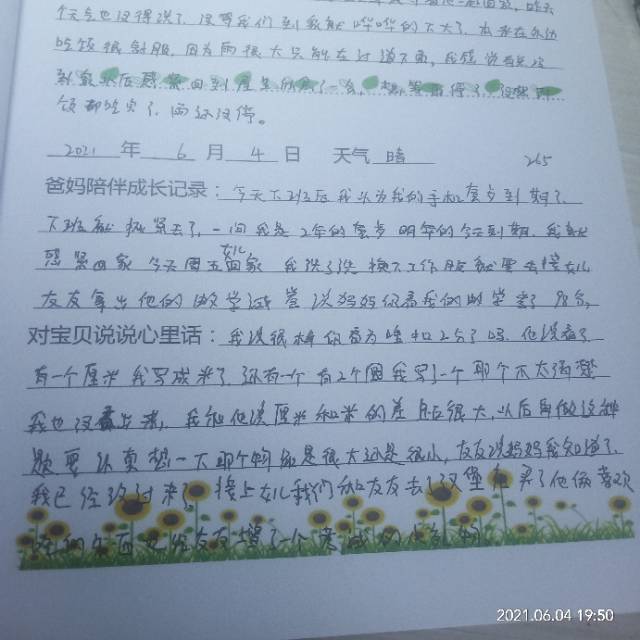 个天气也没得说了,没等我们到家就哗哗的下大了,本来在外边
吃饭很舒服,因为雨很大只能在过道下面,
饭都吃完了,雨还没停。
2021 年 6 月 4 日 天气 晴
265
爸妈陪伴成长记录:今天下班后我以为我的手机套步到期了,
下班就抓紧去了,一问我是2年的套步明年的今天到期,我就
赶紧回家今天周五女儿回家,我洗了洗换下工作服就要去接女儿
友友拿出他的数学试卷说妈妈你看我的数学考了98分,
对宝贝说说心里话:我说很棒你看为啥扣2分了吗,他说看了
有一个厘米我写成米了,还有一个有2个圈我写了一个那个不太清楚
我也没看出来,我和他说厘米和米的差距很大,以后再做这种
题要认真想一下那个物体是很大还是很小,友友说妈妈我知道了,
我已经改过来了,接上女儿我们和友友去了汉堡包买了他俩喜欢
2021.06.04 19:50